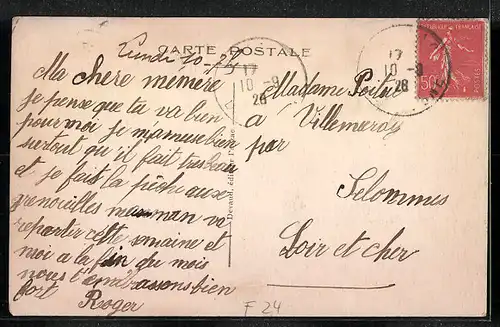 CARTE POSTALE
Lundi 10-9
Ma chere memere
je pense que tu va bien
pour moi je mamuse bien
surtout qu'il fait tres beau
et je fait la pêche aux
grenouilles maman va
repartir cette semaine et
moi a la fin du mois
nous t'embrassons bien
fort Roger
Madame Poitue
à Villemeroy
par
Selommes
Loir et cher
Devaud, édit
RÉPUBLIQUE FRANÇAISE
50c
POSTES
17
10 -9
28
17
10 -9
28
F 24